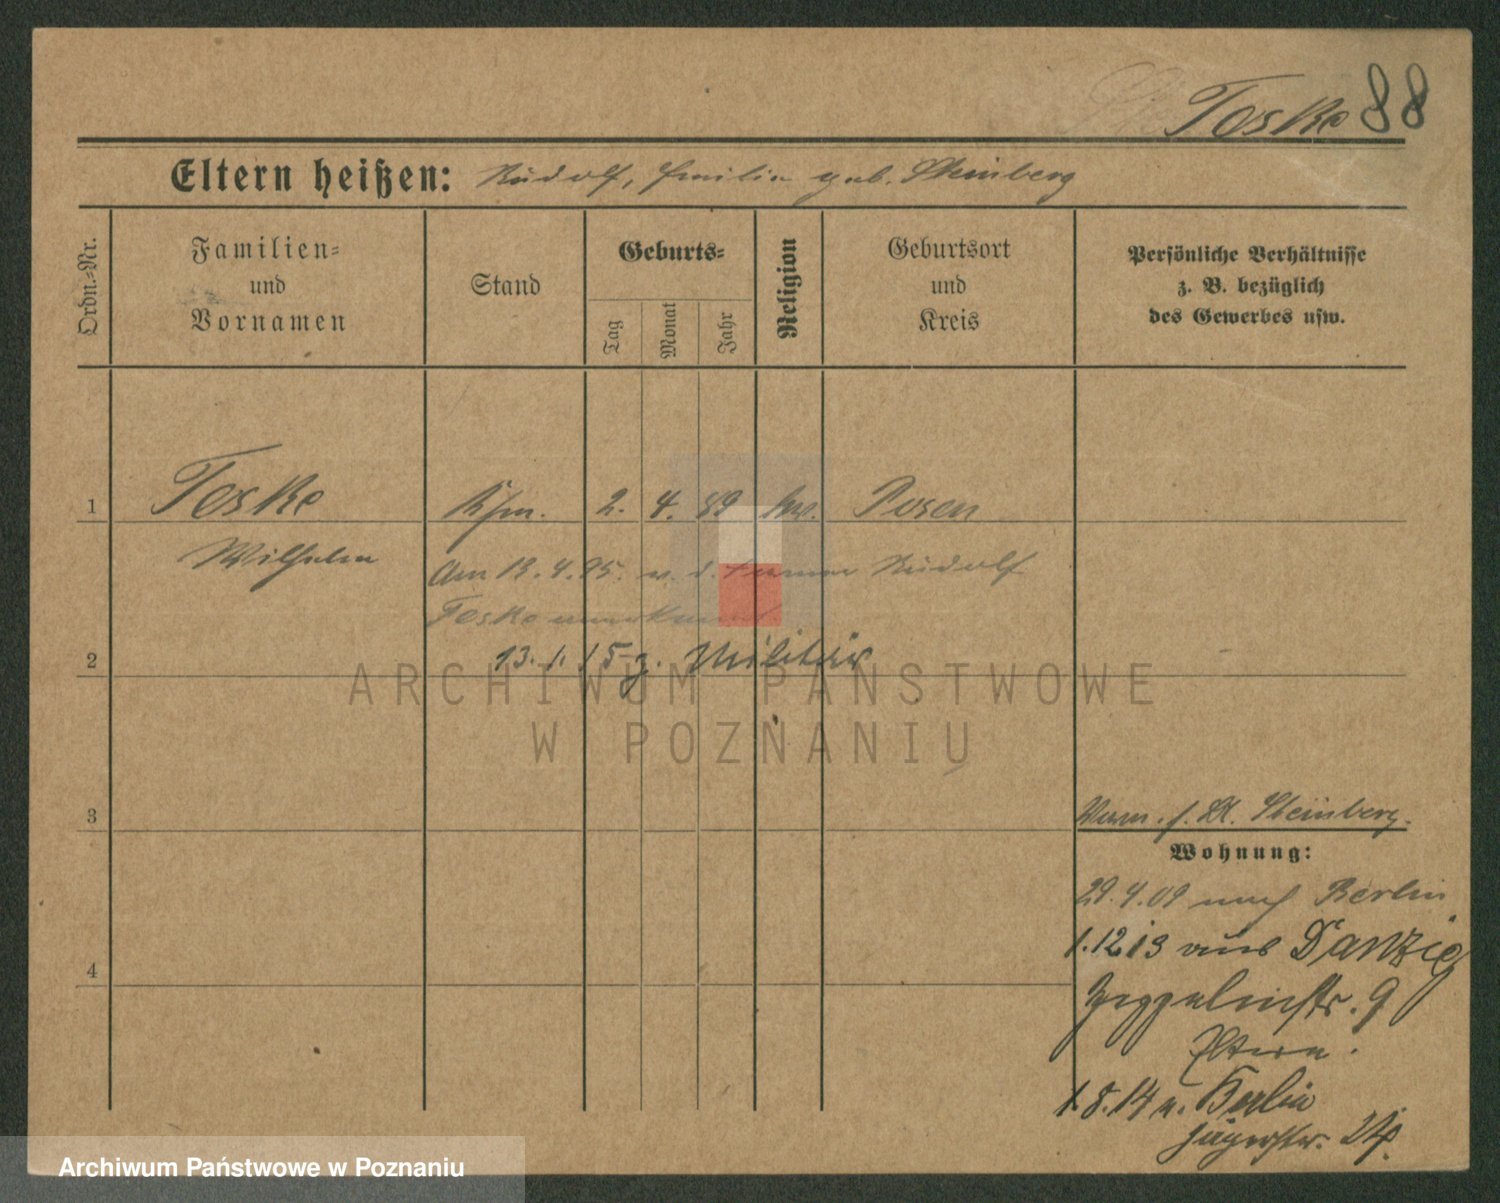 Toske 88
Eltern heißen: Rudolf, Emilie geb. Steinberg
Ordn.-Nr.
Familien-
und
Vornamen
Stand
Geburts-
Tag
Monat
Jahr
Religion
Geburtsort
und
Kreis
Persönliche Verhältnisse
z. B. bezüglich
des Gewerbes usw.
1 Toske Kfm. 2. 4. 89 Posen
Wilhelm
Am 4.95. v. d. Rudolf
Toske
2 13. 1. 15 z. Militär
ARCHIWUM PAŃSTWOWE
W POZNANIU
3
Verm. f. St. Steinberg.
Wohnung:
29.4.09 nach Berlin
1.12 13 aus Danzig
4
Zeppelinstr. 9
Eltern.
1.8.14 n. Berlin
Jägerstr.
Archiwum Państwowe w Poznaniu